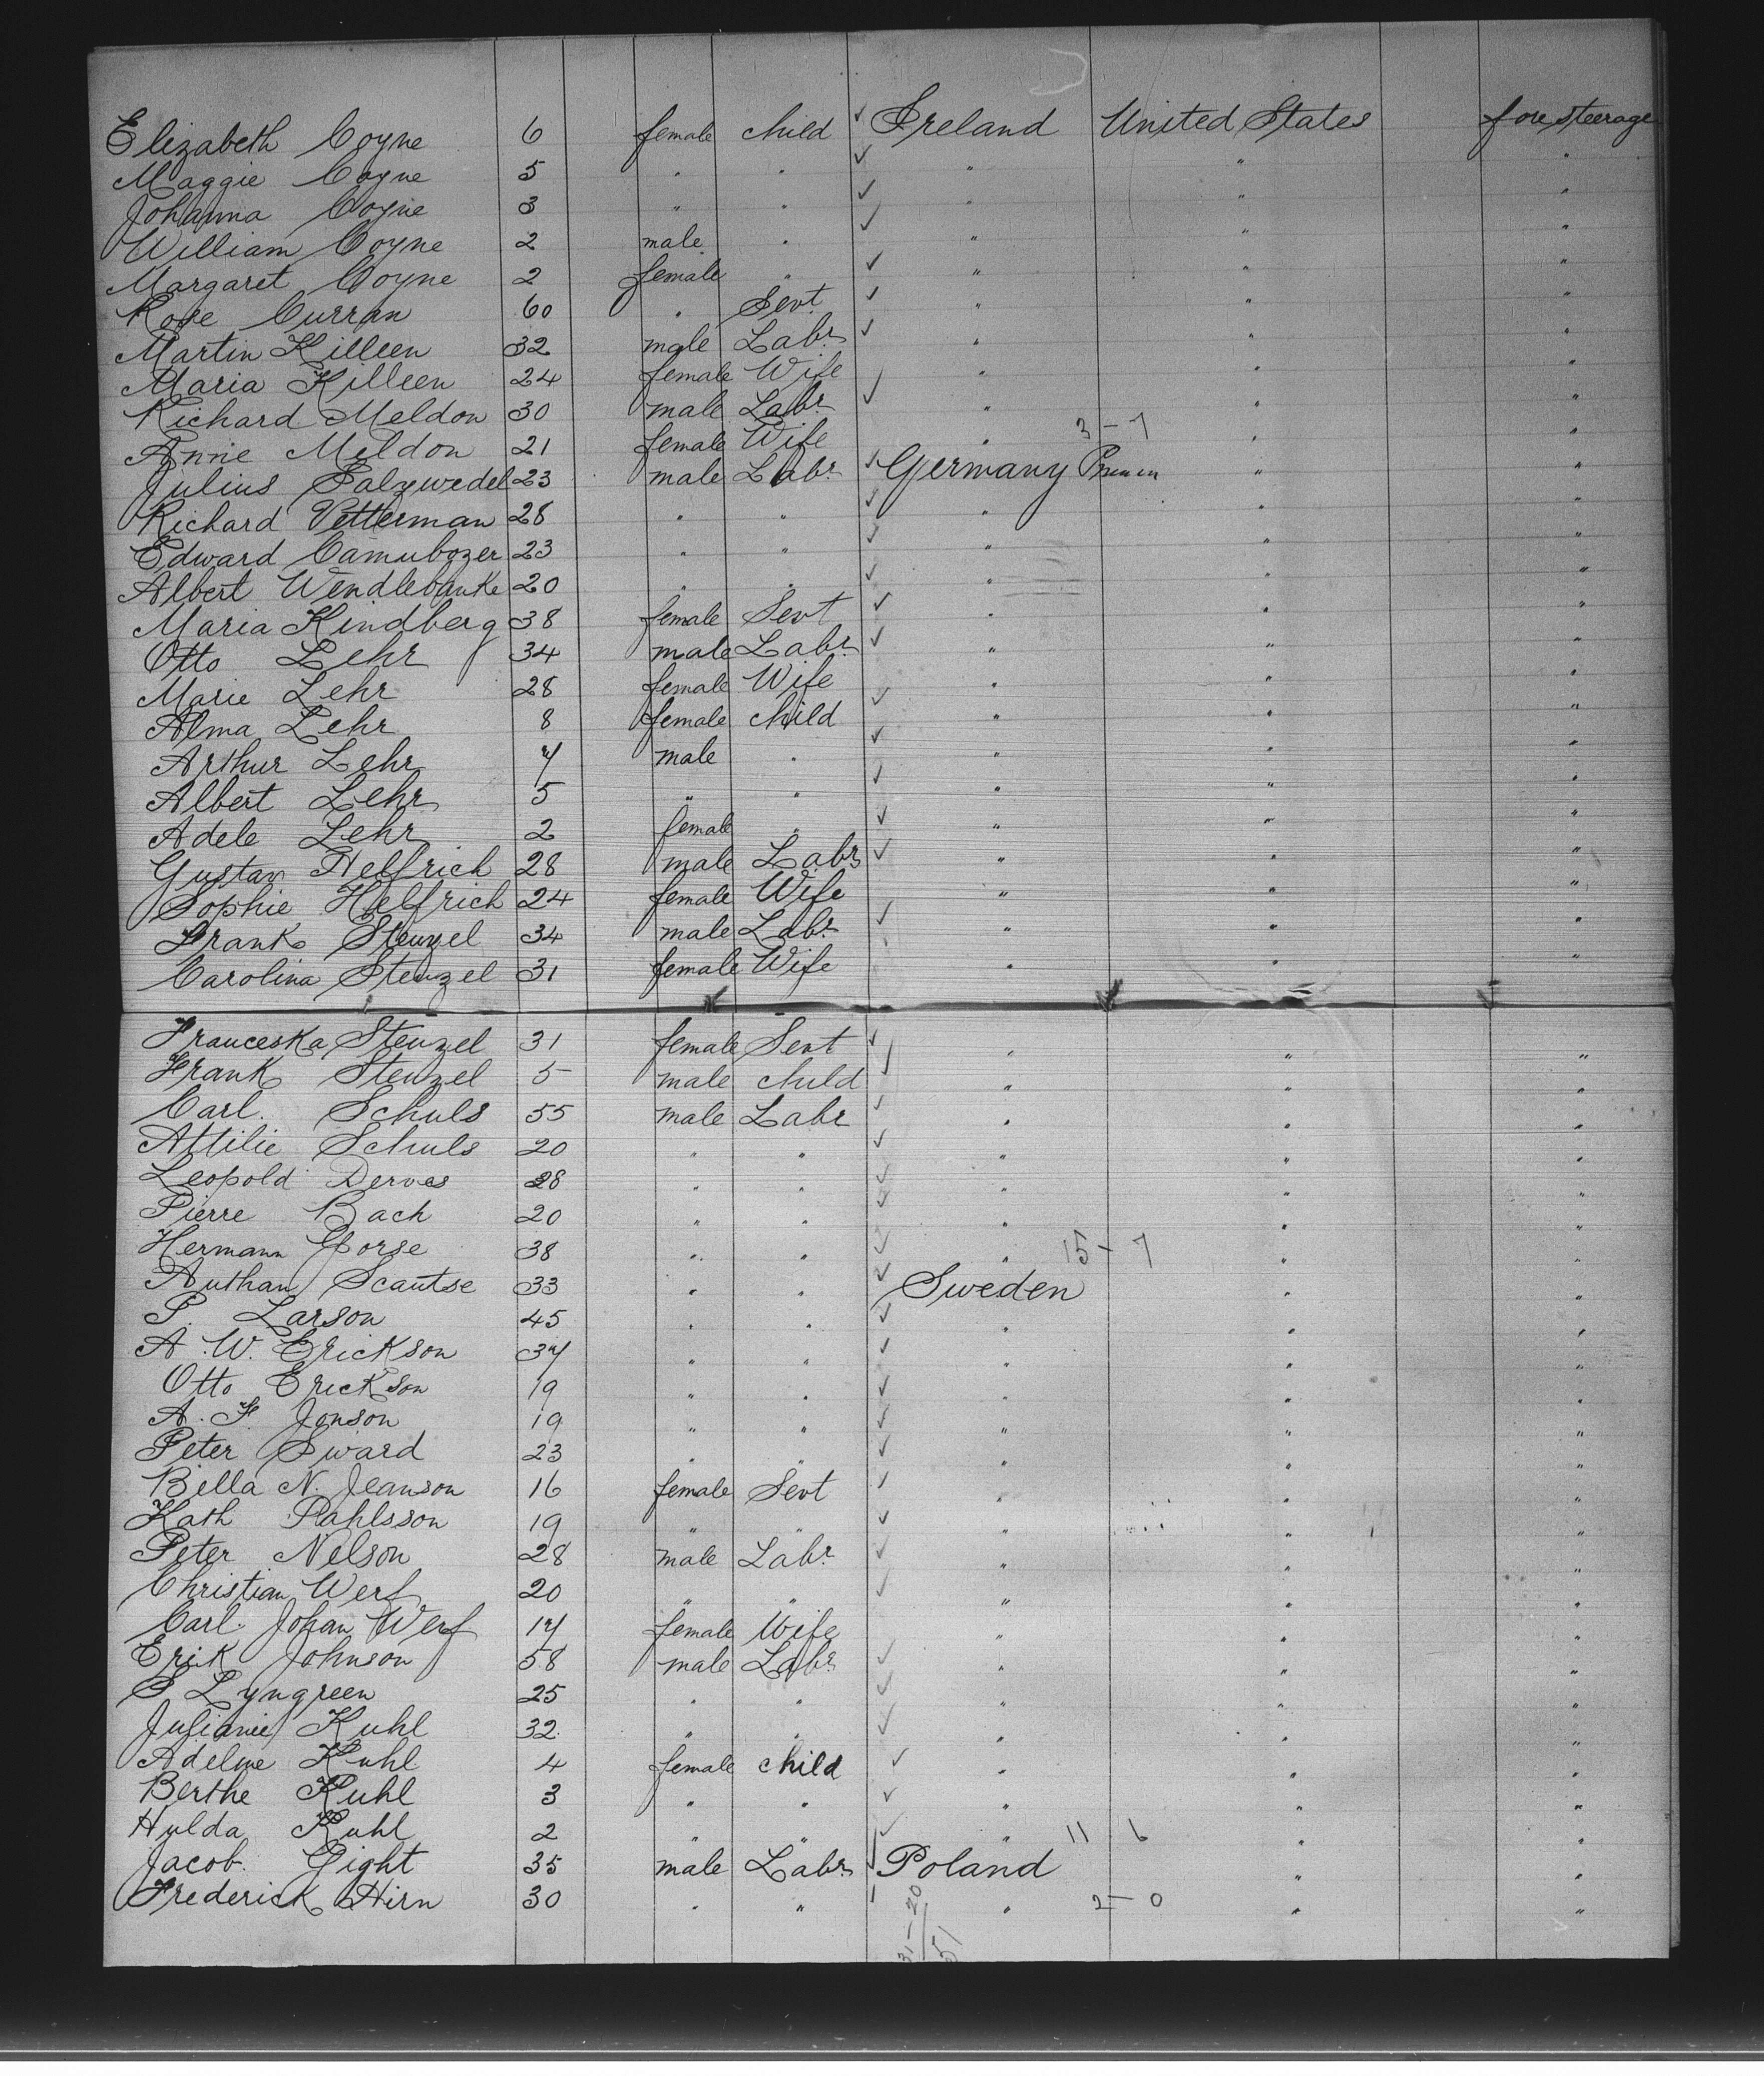 Elizabeth Coyne 6 female child ✓ Ireland United States fore steerage
Maggie Coyne 5 " " ✓ " " "
Johanna Coyne 3 " " ✓ " " "
William Coyne 2 male " ✓ " " "
Margaret Coyne 2 female " ✓ " " "
Rose Curran 60 " Sevt ✓ " " "
Martin Killeen 32 male Labr ✓ " " "
Maria Killeen 24 female Wife " " "
Richard Meldon 30 male Labr ✓ " " "
Annie Meldon 21 female Wife " 3 - 7 " "
Julius Salzwedel 23 male Labr ✓ Germany " "
Richard Vetterman 28 " " ✓ " " "
Edward Camubozer 23 " " ✓ " " "
Albert Wendlebanke 20 " " ✓ " " "
Maria Kindberg 38 female Sevt ✓ " " "
Otto Lehr 34 male Labr ✓ " " "
Marie Lehr 28 female Wife " " "
Alma Lehr 8 female child ✓ " " "
Arthur Lehr 7 male " ✓ " " "
Albert Lehr 5 " " ✓ " " "
Adele Lehr 2 female " ✓ " " "
Gustav Helfrich 28 male Labr ✓ " " "
Sophie Helfrich 24 female Wife " " "
Frank Stenzel 34 male Labr ✓ " " "
Carolina Stenzel 31 female Wife " " "
Franceska Stenzel 31 female Sevt ✓ " " "
Frank Stenzel 5 male child ✓ " " "
Carl. Schuls 55 male Labr ✓ " " "
Attilie Schuls 20 " " ✓ " " "
Leopold Derves 28 " " ✓ " " "
Pierre Bach 20 " " ✓ " " "
Hermann Gorse 38 " " ✓ " 15 - 7 " "
Authan Scautse 33 " " ✓ Sweden " "
P. Larson 45 " " ✓ " " "
A. W. Erickson 37 " " ✓ " " "
Otto Erickson 19 " " ✓ " " "
A. F. Jonson 19 " " ✓ " " "
Peter Sward 23 " " ✓ " " "
Bella N. Jeanson 16 female Sevt ✓ " " "
Kath Pahlsson 19 " " ✓ " " "
Peter Nelson 28 male Labr ✓ " " "
Christian Werf 20 " " ✓ " " "
Carl. Johan Werf 17 female Wife " " "
Erik Johnson 58 male Labr ✓ " " "
Lyngreen 25 " " ✓ " " "
Julianie Kuhl 32 " " ✓ " " "
Adeline Kuhl 4 female child ✓ " " "
Berthe Kuhl 3 " " ✓ " " "
Hulda Kuhl 2 " " ✓ " 11 6 " "
Jacob. Gight 35 male Labr ✓ Poland " "
Frederick Hirn 30 " " " 2 - 0 " "
31 - 20
51